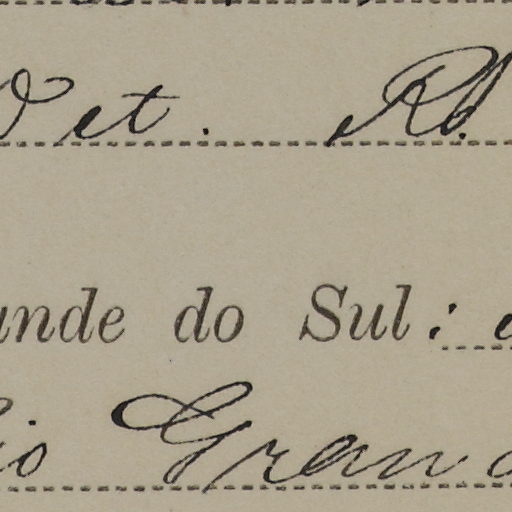 Det. Rb
ande do Sul:
io Grand